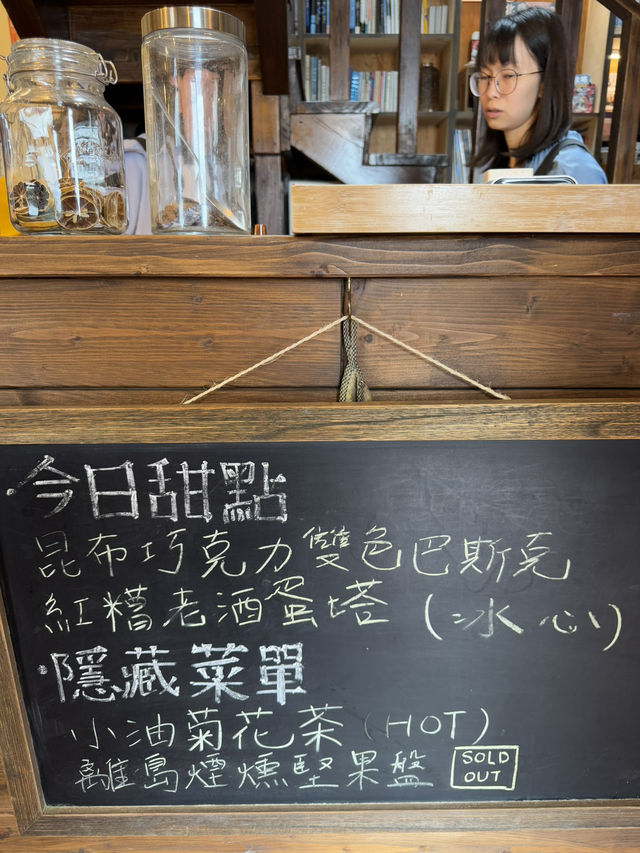 ·今日甜點
昆布巧克力雙色巴斯克
紅糟老酒蛋塔 (冰心)
·隱藏菜單
小油菊花茶 (HOT)
離島煙燻堅果盤 SOLD OUT